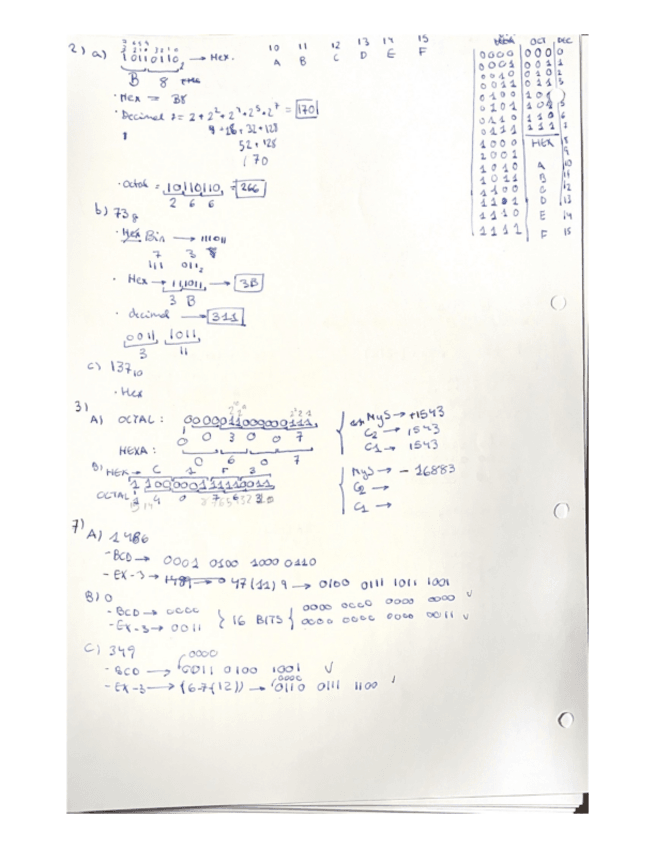 2) a) 10110110 → Hex.
10 11 12 13 14 15
A B C D E F
B 8
· Hex = B8
· Decimal = 2 + 2² + 2⁴ + 2⁵ + 2⁷ = 170
4 + 16 + 32 + 128
52 + 128
170
· Octal = 10110110 = 266
2 6 6
b) 73₈
· Hex Bin → 111011
7 3
111 011₂
· Hex → 111011 → 3B
3 B
· decimal → 311
0011 1011
3 11
c) 137₁₀
· Hex
3)
A) OCTAL : 0000011000000111
0 0 3 0 0 7
HEXA : 0 6 0 7
MyS → +1543
C2 → 1543
C1 → 1543
B) HEX → C 1 F 3
1100000111110011
OCTAL 1 4 0 7 6 3
MyS → - 16883
C2 →
C1 →
7)
A) 1486
- BCD → 0001 0100 1000 0110
- EX-3 → 47(11)9 → 0100 0111 1011 1001
B) 0
- BCD → 0000
- EX-3 → 0011
16 BITS
0000 0000 0000 0000
0000 0000 0000 0011
C) 349
0000
- BCD → 0011 0100 1001
0000
- EX-3 → (67(12)) → 0110 0111 1100
HEXA OCT DEC
0000 000 0
0001 001 1
0010 010 2
0011 011 3
0100 101
0101 101 5
0110 110 6
0111 111 7
1000 HEX 8
1001 9
1010 A 10
1011 B 11
1100 C 12
1101 D 13
1110 E 14
1111 F 15